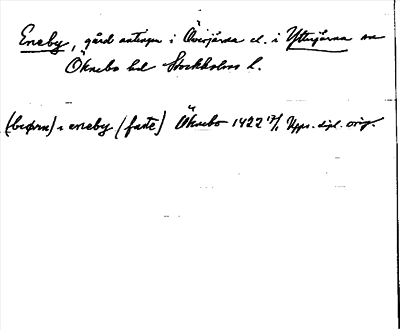 Eneby, gård antingen i Överjärna el. i Ytterjärna sn
Öknebo hd Stockholms l.
(biørn) i eneby (faste) Öknebo 1422 17/1 Upps. dipl. orig.